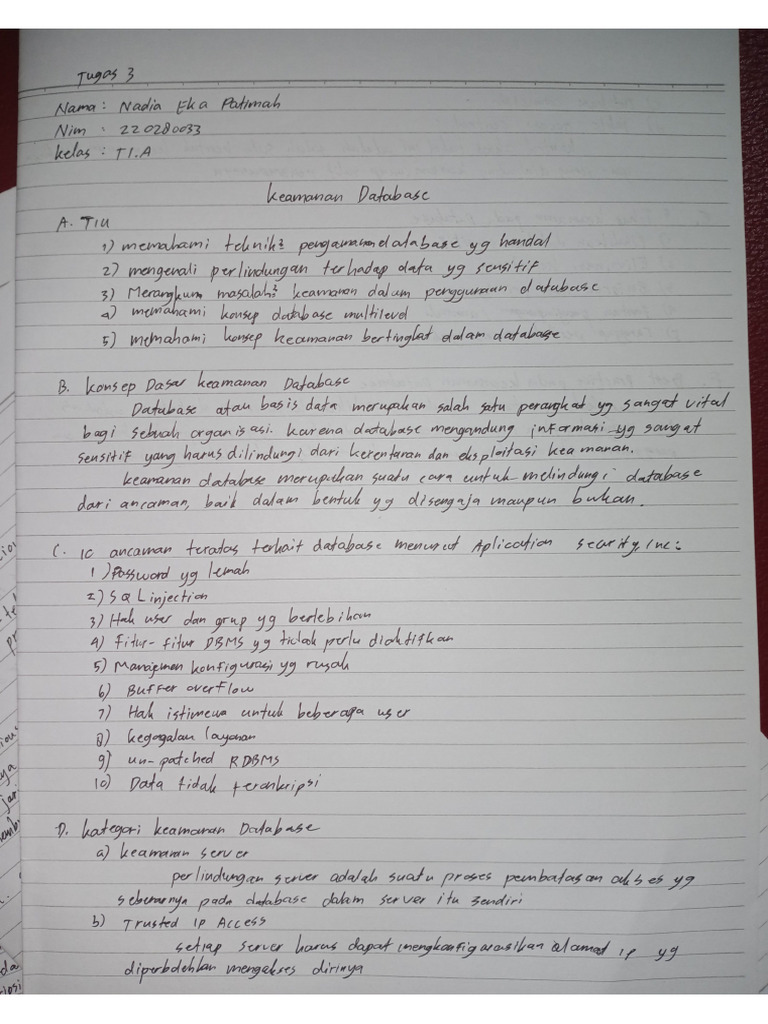 Tugas 3
Nama : Nadia Eka Patimah
Nim : 220280033
Kelas : TI.A
Keamanan Database
A. TIU
1) memahami teknik² pengamanan database yg handal
2) mengenali perlindungan terhadap data yg sensitif
3) Merangkum masalah² keamanan dalam penggunaan database
4) memahami konsep database multilevel
5) memahami konsep keamanan bertingkat dalam database
B. Konsep Dasar Keamanan Database
Database atau basis data merupakan salah satu perangkat yg sangat vital
bagi sebuah organisasi. karena database mengandung informasi yg sangat
sensitif yang harus dilindungi dari kerentanan dan eksploitasi keamanan.
keamanan database merupakan suatu cara untuk melindungi database
dari ancaman, baik dalam bentuk yg disengaja maupun bukan.
C. 10 ancaman teratas terkait database menurut Aplication security, Inc:
1) Password yg lemah
2) SQL injection
3) Hak user dan grup yg berlebihan
4) Fitur-fitur DBMS yg tidak perlu diaktifkan
5) Manajemen konfigurasi yg rusak
6) Buffer overflow
7) Hak istimewa untuk beberapa user
8) kegagalan layanan
9) un-patched RDBMS
10) Data tidak terenkripsi
D. Kategori Keamanan Database
a) keamanan server
perlindungan server adalah suatu proses pembatasan akses yg
sebenarnya pada database dalam server itu sendiri
b) Trusted Ip Access
setiap server harus dapat mengkonfigurasikan alamat ip yg
diperbolehkan mengakses dirinya